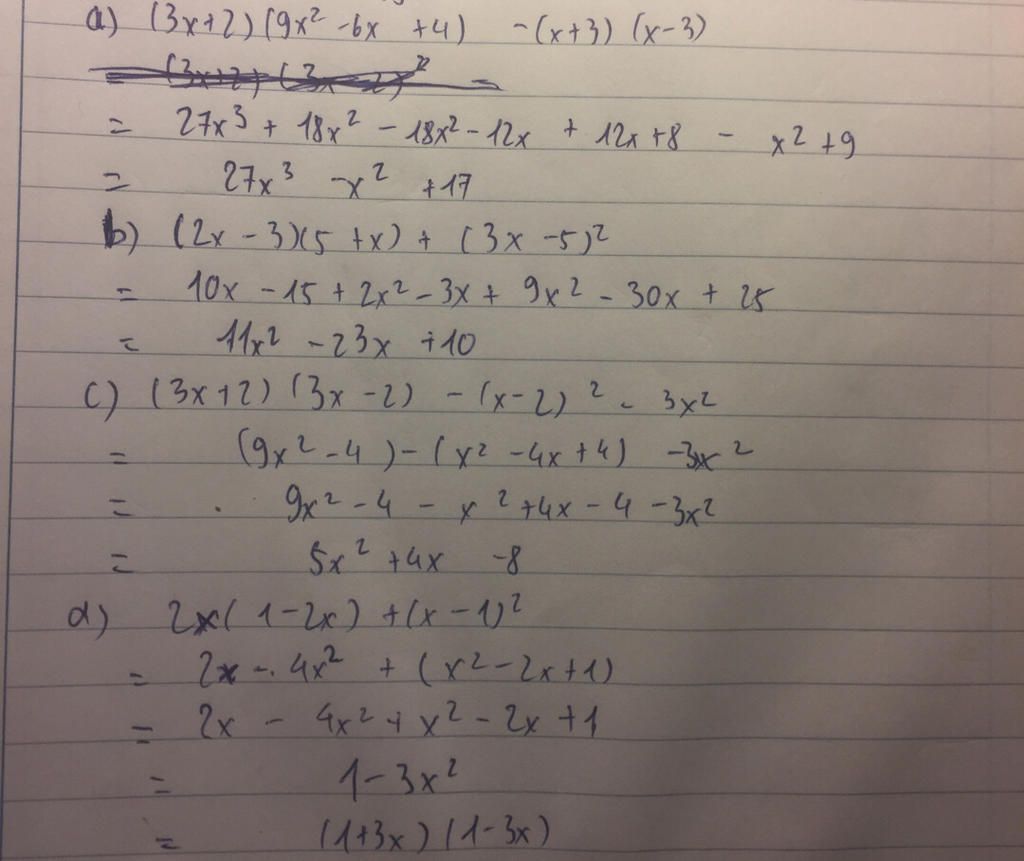 a) (3x+2)(9x² -6x +4) -(x+3)(x-3)
= (3x+2)(3x-2)² =
= 27x³ + 18x² - 18x² - 12x + 12x + 8 - x² + 9
= 27x³ -x² +17
b) (2x - 3)(5 + x) + (3x - 5)²
= 10x - 15 + 2x² - 3x + 9x² - 30x + 25
= 11x² - 23x + 10
c) (3x+2)(3x-2) - (x-2)² - 3x²
= (9x² - 4) - (x² - 4x + 4) - 3x²
= 9x² - 4 - x² + 4x - 4 - 3x²
= 5x² + 4x - 8
d) 2x(1-2x) + (x-1)²
= 2x - 4x² + (x² - 2x + 1)
= 2x - 4x² + x² - 2x + 1
= 1 - 3x²
= (1+3x)(1-3x)